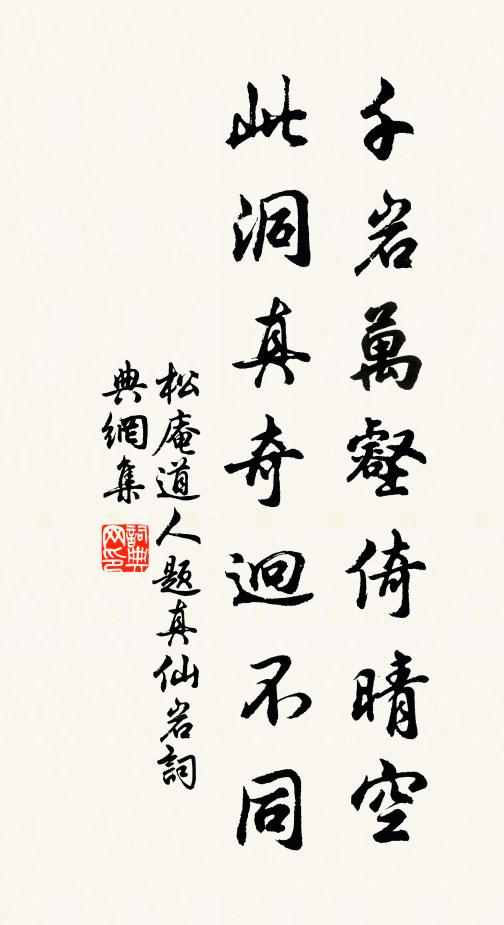 千岩萬壑倚晴空
此洞真奇迥不同
松庵道人題真仙岩詞
典網集
詞典
网印